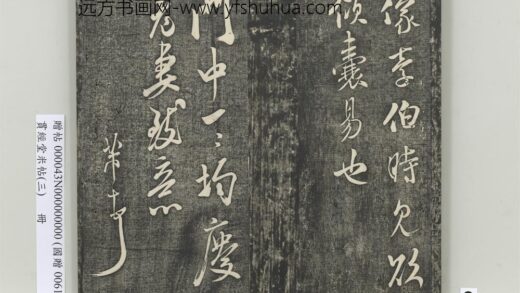 远方书画网-www.yfshuhua.com
像李伯時見欲
傾囊易也
門中一一均慶
老妻致意
芾十一
贈帖 000043N000000000 (國贈 0061
貫經堂米帖(三) 冊